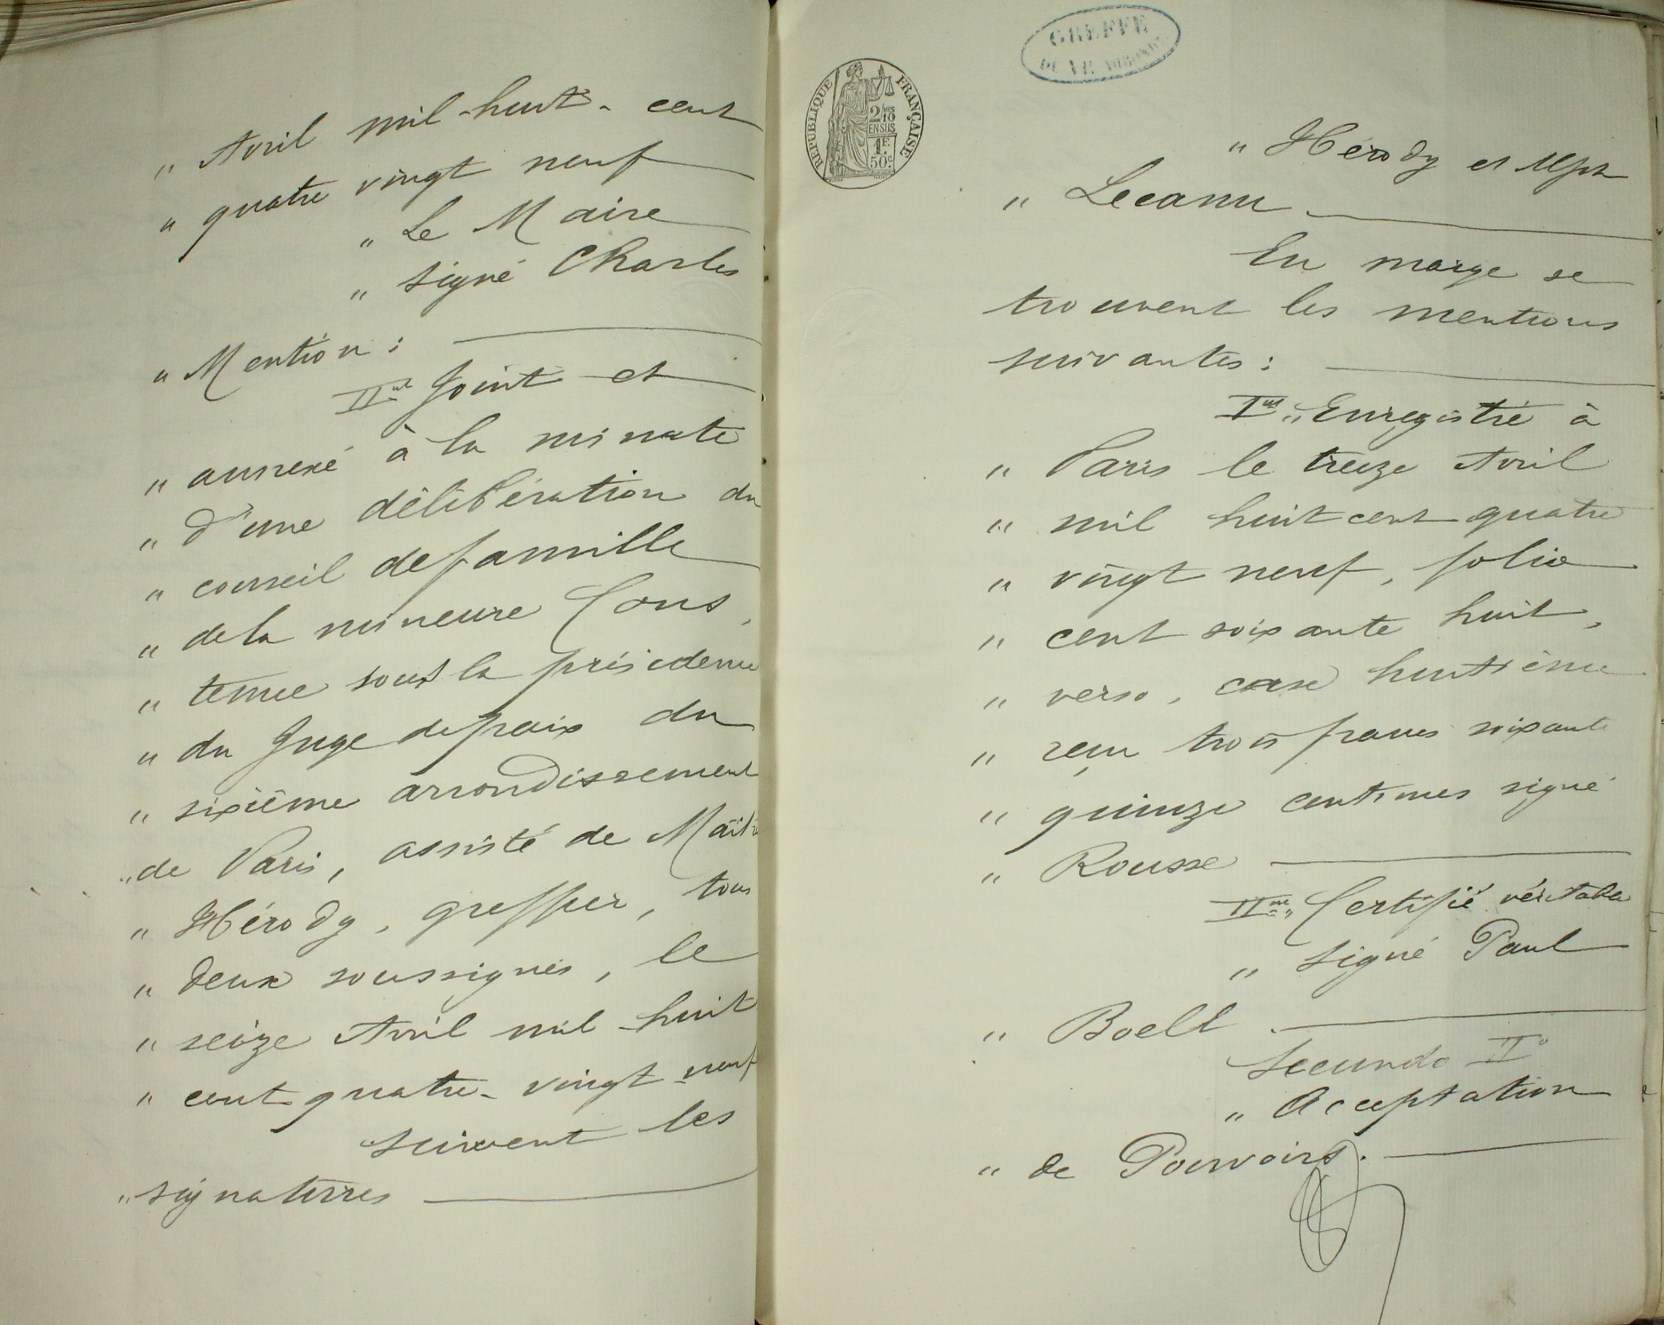 „ Avril mil-huit-cent
„ quatre vingt neuf
„ Le Maire
„ signé Charles
„ Mention :
IIent Joint et
„ annexé à la minute
„ d'une délibération du
„ conseil de famille
„ de la mineure Cons,
„ tenue sous la présidence
„ du Juge de paix du
„ sixième arrondissement
„ de Paris, assisté de Maître
„ Hérody, greffier, tous
„ deux soussignés, le
„ seize Avril mil-huit
„ cent quatre-vingt neuf
suivent les
„ signatures
GREFFE
RÉPUBLIQUE FRANÇAISE
2/10
EN SUS
1F
50c
„ Hérody et Alph
„ Lecanu
En marge se
trouvent les mentions
suivantes :
Ient „ Enregistré à
„ Paris le treize Avril
„ mil huit cent quatre
„ vingt neuf, folio
„ cent soixante huit,
„ verso, case huitième
„ reçu trois francs soixante
„ quinze centimes signé
„ Rousse
IIent „ Certifié véritable
„ signé Paul
„ Boell.
Secundo IIo
„ Acceptation
„ de Pouvoirs.